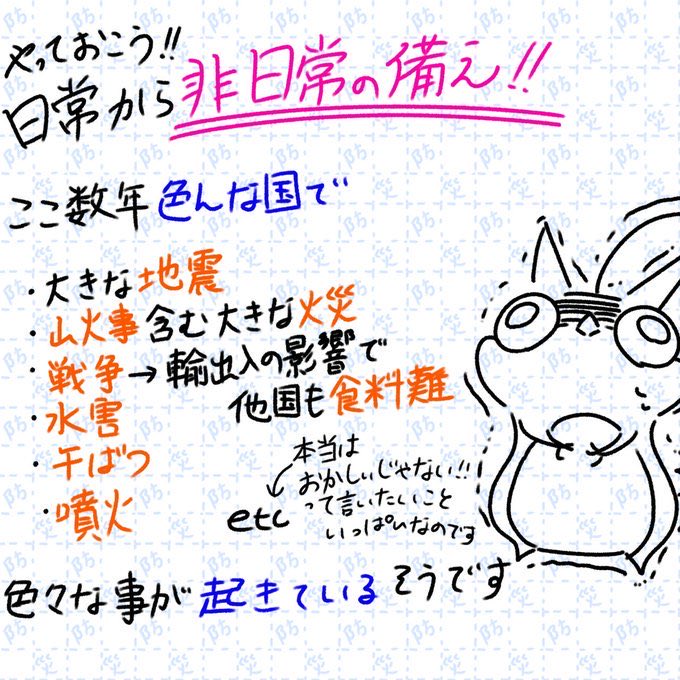 やっておこう!!
日常から非日常の備え!!
ここ数年色んな国で
・大きな地震
・山火事含む大きな火災
・戦争→輸出入の影響で
他国も食料難
・水害
・干ばつ
・噴火
etc
本当は
おかしいじゃない!!
って言いたいこと
いっぱいなのです
色々な事が起きているそうです
防災